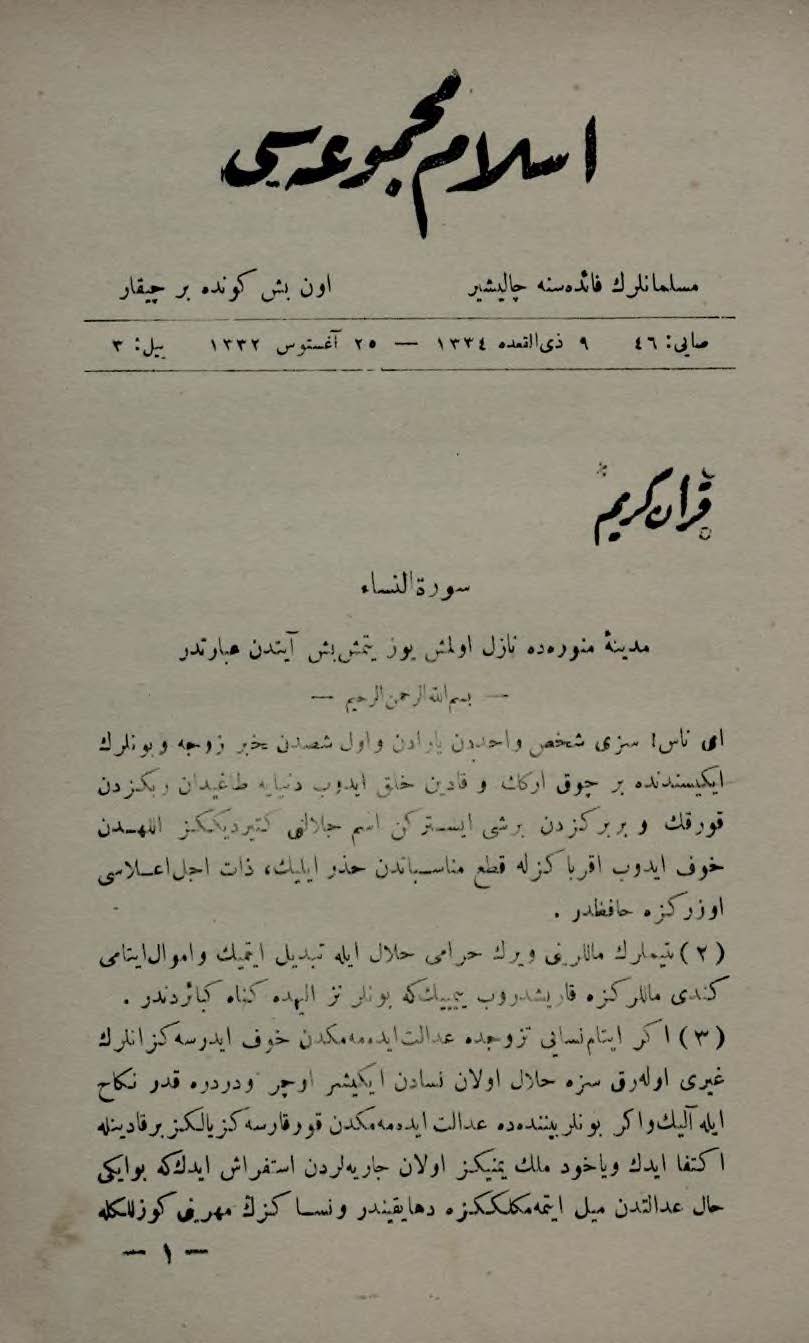 اسلام مجموعه‌سی
مسلمانلرك فائده‌سنه چالیشیر اون بش كونده بر چیقار
صایی: ٤٦ ٩ ذی‌القعده ١٣٣٤ — ٢٥ آغستوس ١٣٣٢ ییل: ٣
قرآن كریم
سورة‌النساء
مدینهٔ منوره‌ده نازل اولمش یوز یتمش‌بش آیتدن عبارتدر
— بسم‌الله‌الرحمن‌الرحیم —
ای ناس! سزی شخص واحددن یارادن واول شصدن یخبر زوجه وبونلرك
ایكیسندنده بر چوق اركك و قادین خلق ایدوب دنیایه طاغیدان ربكزدن
قورقك و بربركزدن برشی ایسترکن اسم جلالنی كتیردیككز اللهدن
خوف ایدوب اقرباكزله قطع مناسباتدن حذر ایلیك، ذات اجل‌اعلاسی
اوزركزه حافظدر .
(٢) یتیملرك ماللرینی ویرك حرامی حلال ایله تبدیل ایتمیك واموال‌ایتامی
كندی ماللركزه قاریشدروب ییمییك‌كه بونلر نزد الهیده كناه كبائردندر .
(٣) اكر ایتام‌نسایی تزوجده عدالت‌ایده‌مه‌مكدن خوف ایدرسه‌كز انلرك
غیری اوله‌رق سزه حلال اولان نسادن ایكیشر اوچر ودردره قدر نكاح
ایله آلیك‌واكر بونلربیننده‌ده عدالت ایده‌مه‌مكدن قورقارسه‌كز یالكز برقادینله
اكتفا ایدك ویاخود ملك یمنیكز اولان جاریه‌لردن استفراش ایدك‌كه بوایكی
حال عدالتدن میل ایتمه‌مكلككزه دهایقیندر ونساكزك مهرینی كوزللكله
— ١ —